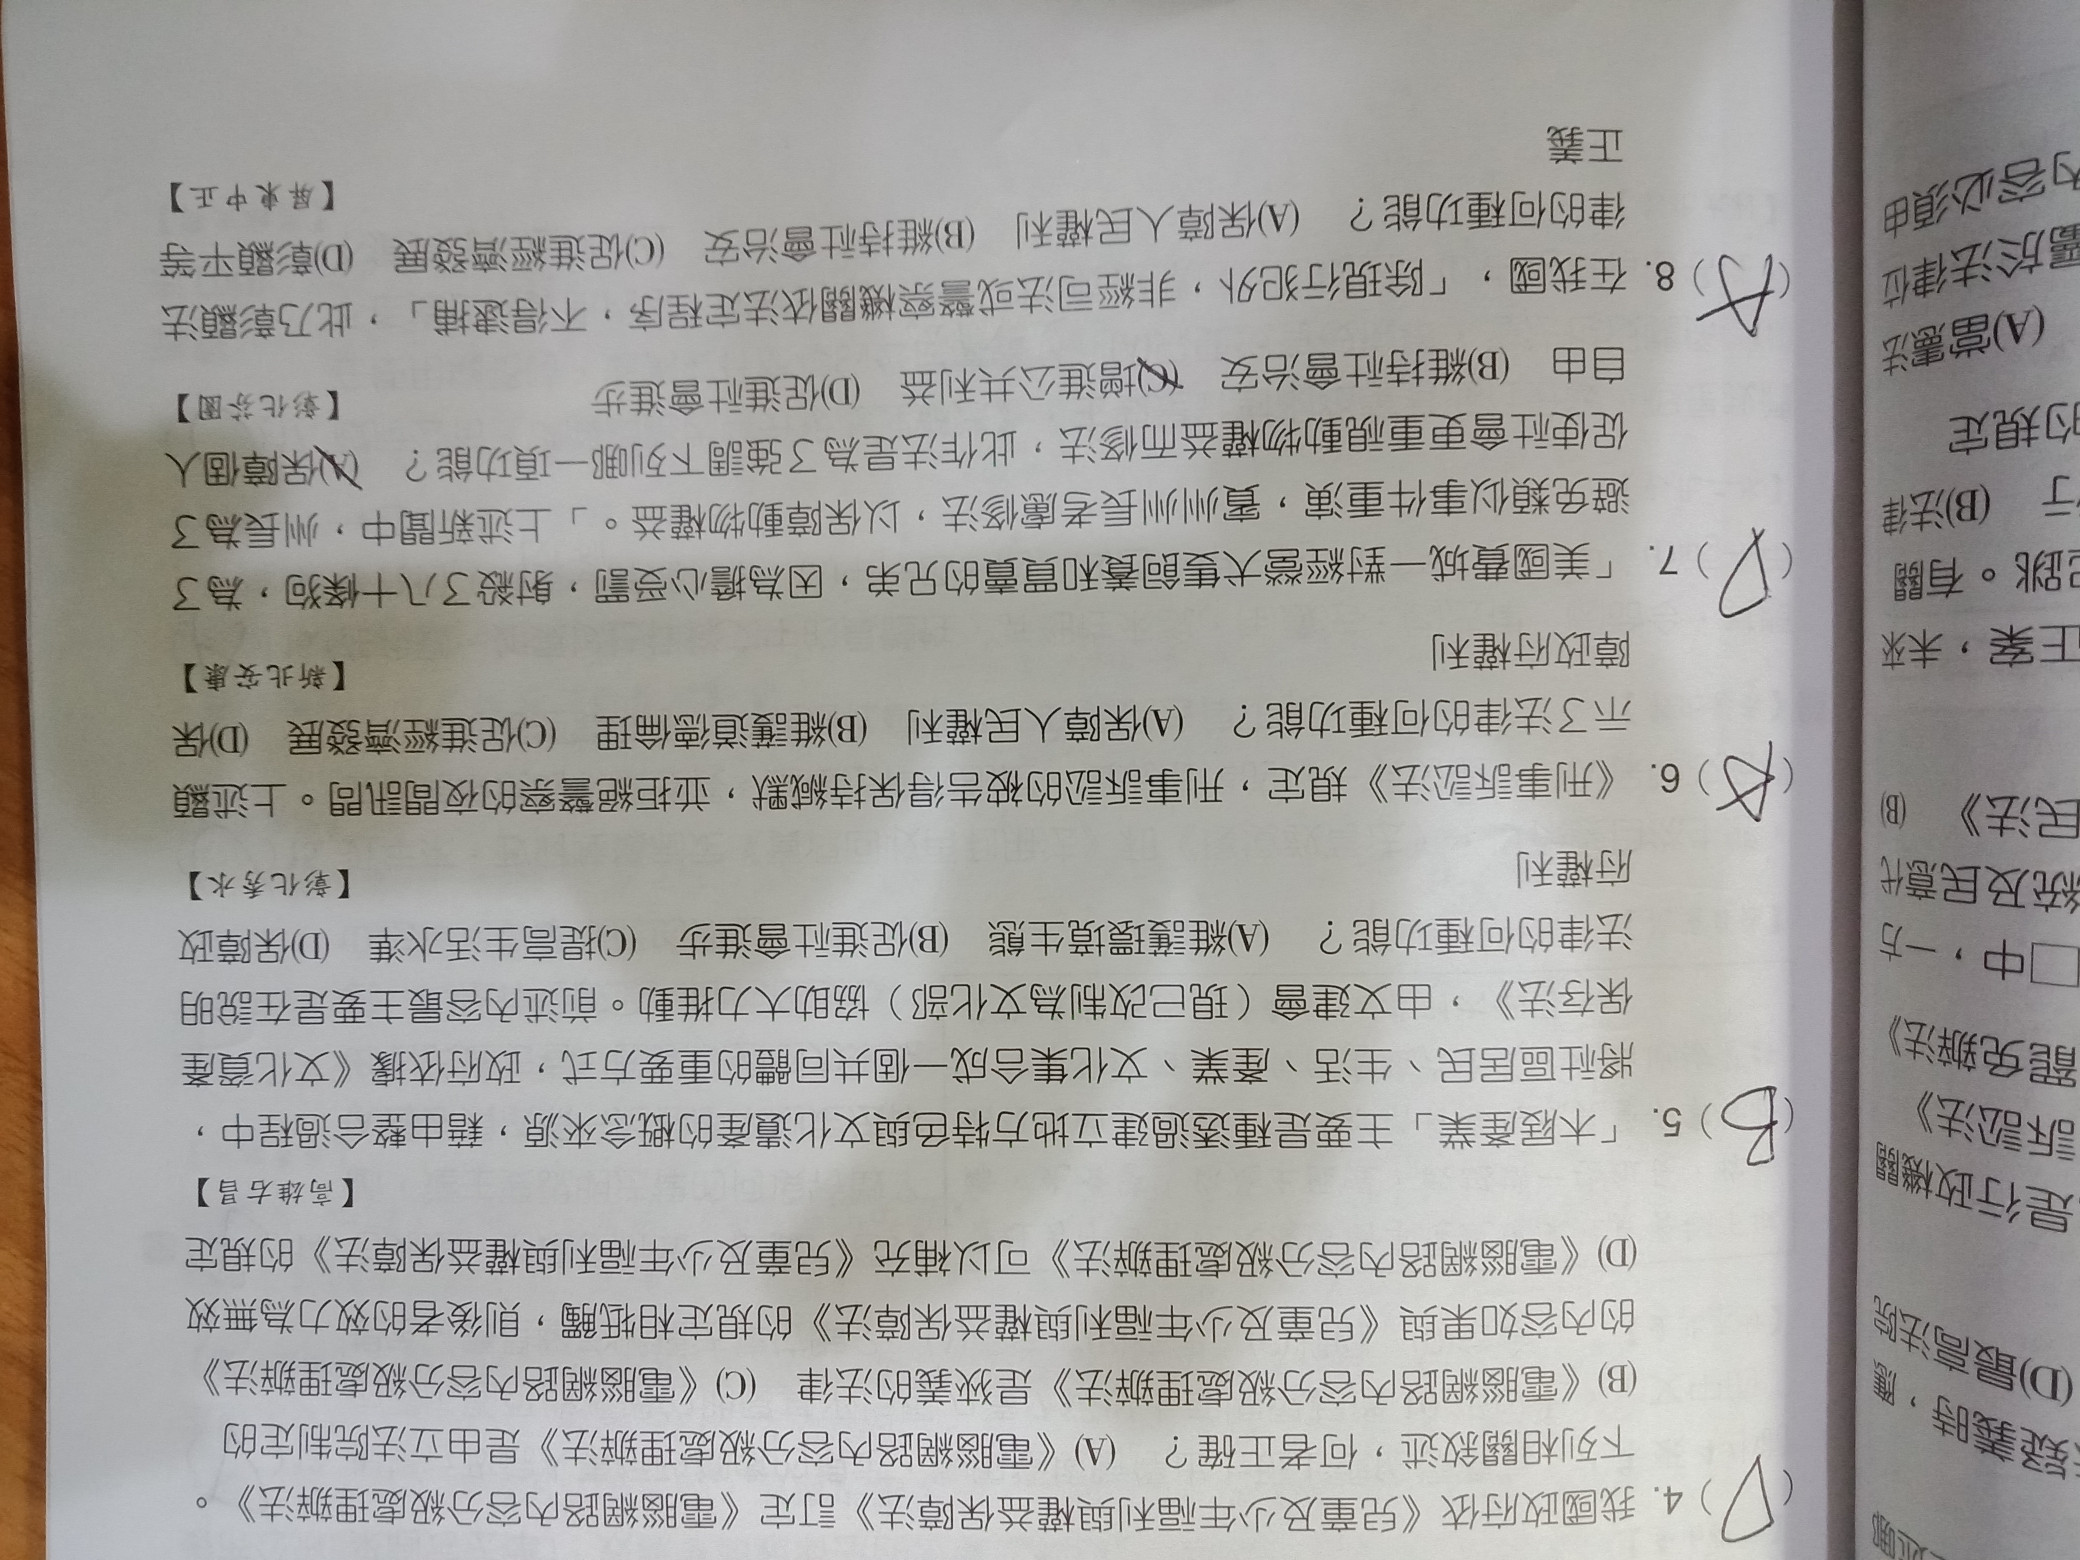 (D) 4. 我國政府依《兒童及少年福利與權益保障法》訂定《電腦網路內容分級處理辦法》。
下列相關敘述，何者正確？ (A)《電腦網路內容分級處理辦法》是由立法院制定的
(B)《電腦網路內容分級處理辦法》是狹義的法律 (C)《電腦網路內容分級處理辦法》
的內容如果與《兒童及少年福利與權益保障法》的規定相牴觸，則後者的效力為無效
(D)《電腦網路內容分級處理辦法》可以補充《兒童及少年福利與權益保障法》的規定
【高雄右昌】
(B) 5. 「木屐產業」主要是種透過建立地方特色與文化遺產的概念來源，藉由整合過程中，
將社區居民、生活、產業、文化集合成一個共同體的重要方式，政府依據《文化資產
保存法》，由文建會（現已改制為文化部）協助大力推動。前述內容最主要是在說明
法律的何種功能？ (A)維護環境生態 (B)促進社會進步 (C)提高生活水準 (D)保障政
府權利
【彰化秀水】
(A) 6. 《刑事訴訟法》規定，刑事訴訟的被告得保持緘默，並拒絕警察的夜間訊問。上述顯
示了法律的何種功能？ (A)保障人民權利 (B)維護道德倫理 (C)促進經濟發展 (D)保
障政府權利
【新北安康】
(D) 7. 「美國費城一對經營犬隻飼養和買賣的兄弟，因為擔心受罰，射殺了八十條狗，為了
避免類似事件重演，賓州州長考慮修法，以保障動物權益。」上述新聞中，州長為了
促使社會更重視動物權益而修法，此作法是為了強調下列哪一項功能？ (A)保障個人
自由 (B)維持社會治安 (C)增進公共利益 (D)促進社會進步
【彰化芬園】
(A) 8. 在我國，「除現行犯外，非經司法或警察機關依法定程序，不得逮捕」，此乃彰顯法
律的何種功能？ (A)保障人民權利 (B)維持社會治安 (C)促進經濟發展 (D)彰顯平等
正義
【屏東中正】
(D)最高法院
是行政機關
訴訟法》
罷免辦法》
□中，一方
統及民意代
民法》 (B)
正案，未來
記跳。有關
行 (B)法律
的規定
(A)當憲法
屬於法律位
內容必須由